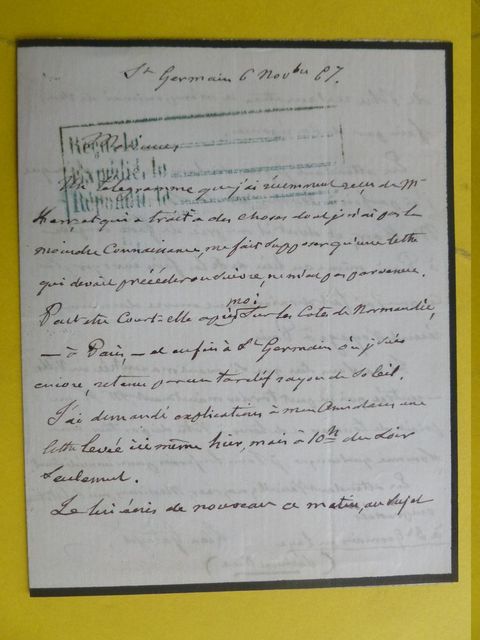 St Germain 6 Novbre 67.
Reçu le
Expédié, le
Répondu, le
Messieurs,
Un télégramme que j'ai récemment reçu de Mr
et qui a trait a des choses dont je n'ai pas la
moindre Connaissance, me fait supposer qu'une lettre
qui devait précéder ou suivre, ne m'est pas parvenue.
Peut être Court-elle après moi Sur les Cotes de Normandie,
— à Paris, — et enfin à St Germain où je suis
encore, retenu par un tardif rayon de Soleil.
J'ai demandé explication à mon Ami dans une
lettre levée ici même hier, mais à 10h du Soir
Seulement.
Je lui écris de nouveau ce matin, au Sujet